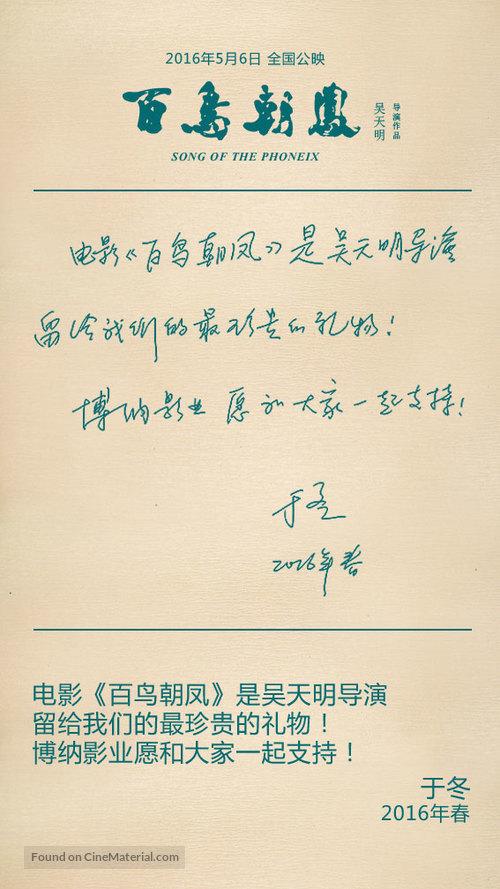 2016年5月6日 全国公映
百鸟朝鳳
吴天明
导演作品
SONG OF THE PHONEIX
电影《百鸟朝凤》是吴天明导演
留给我们的最珍贵的礼物！
博纳影业愿和大家一起支持！
于冬
2016年春
电影《百鸟朝凤》是吴天明导演
留给我们的最珍贵的礼物！
博纳影业愿和大家一起支持！
于冬
2016年春
Found on CineMaterial.com